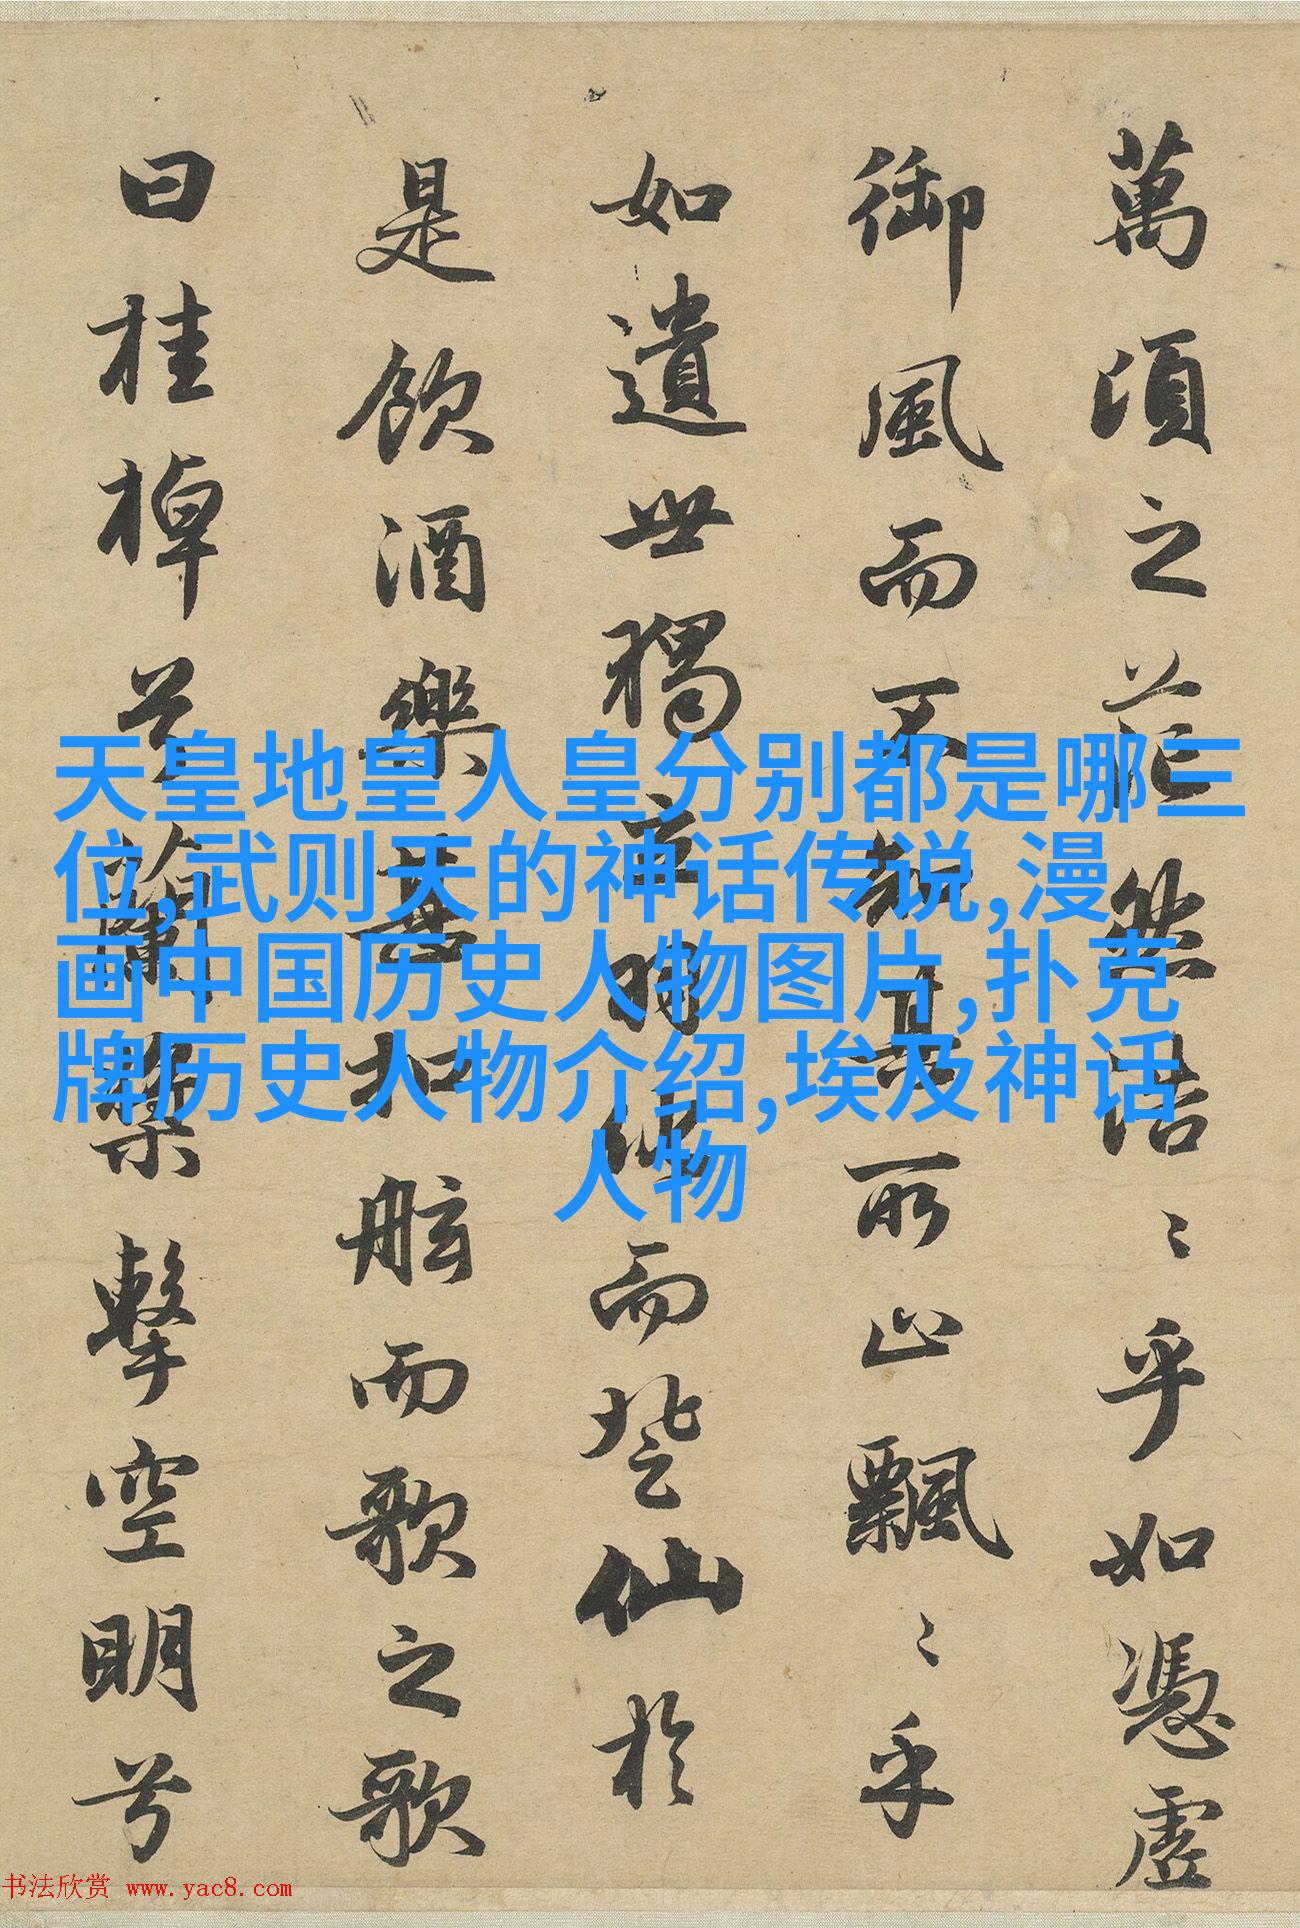 萬頃之茫然浩〻乎如憑虛
御風而不知其所止飄〻乎
如遺世獨立羽化而登仙於
是飲酒樂甚扣舷而歌之歌
曰桂棹兮蘭槳擊空明兮
天皇地皇人皇分别都是哪三
位,武则天的神话传说,漫
画中国历史人物图片,扑克
牌历史人物介绍,埃及神话
人物
书法欣赏 www.yac8.com